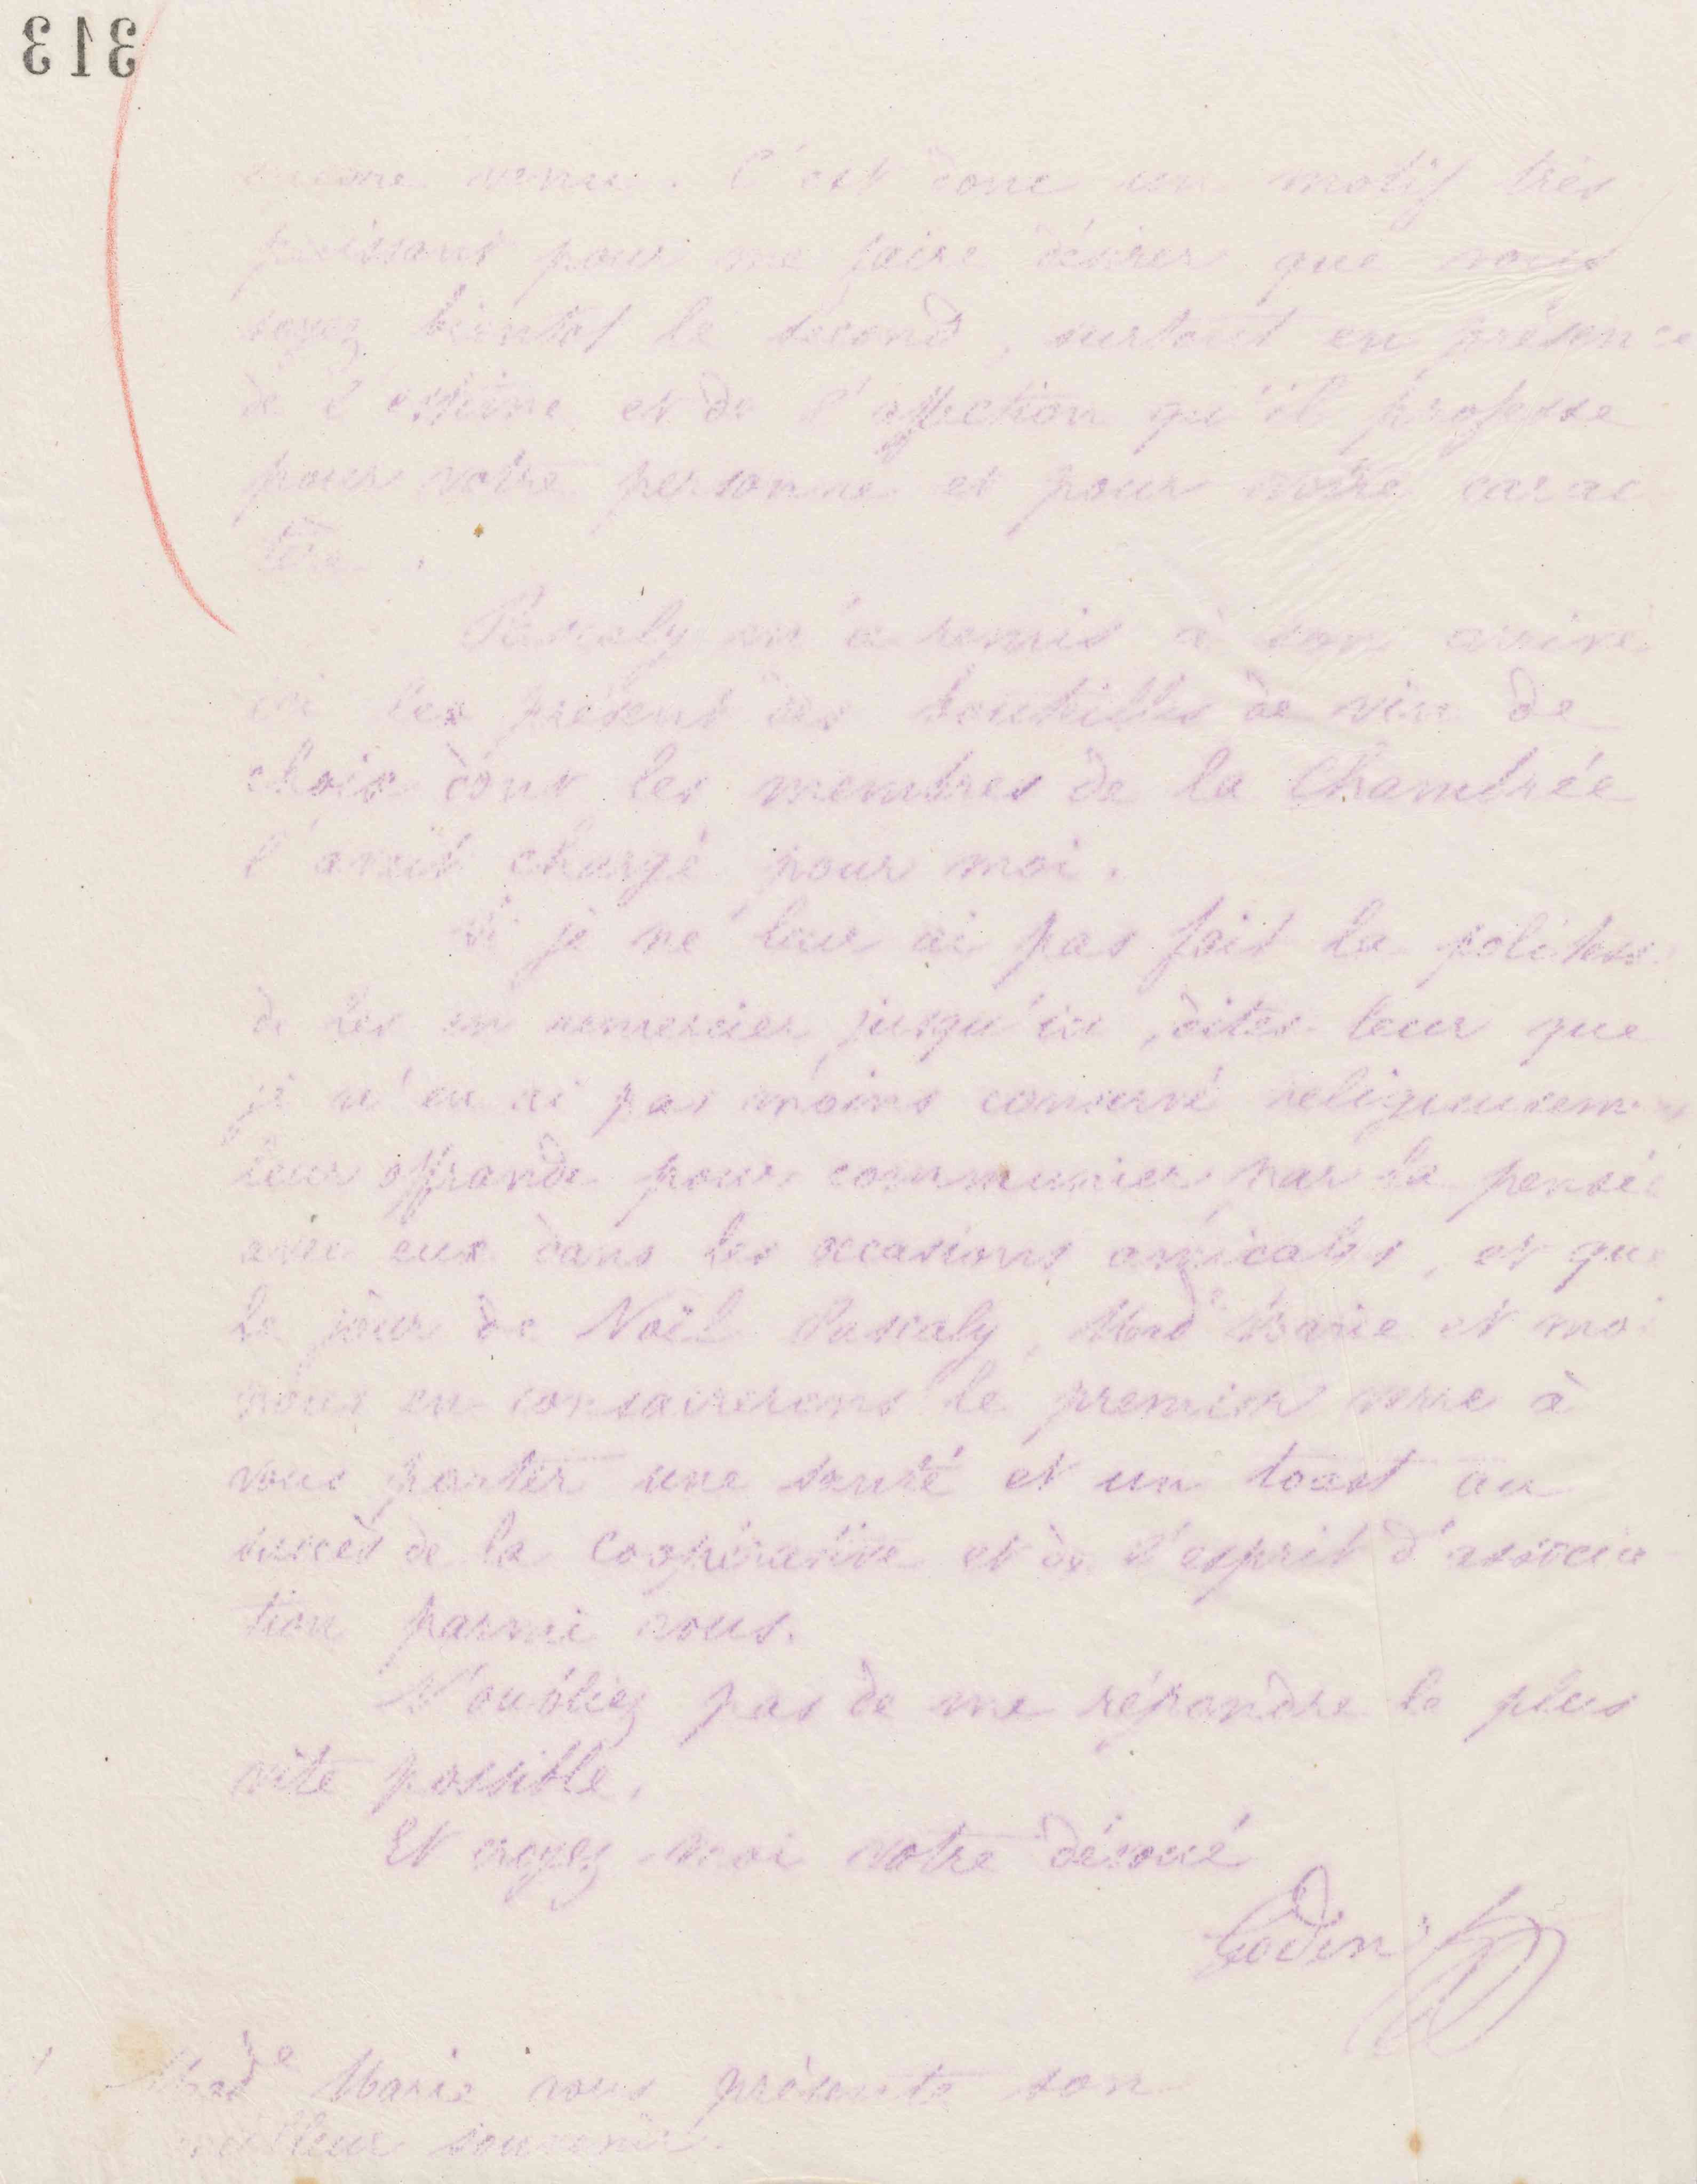 313
encore venu. C'est donc un motif très
puissant pour me faire désirer que vous
soyez bientôt le second, surtout en présence
de l'estime et de l'affection qu'il professe
pour votre personne et pour votre carac
tère.
Pascaly m'a remis à son arrivé
ici les présent des bouteilles de vin de
choix dont les membres de la Chambrée
l'avait chargé pour moi.
Si je ne leur ai pas fait la politess
de les en remercier jusqu'ici, dites-leur que
je n'en ai pas moins conservé religieusem
leur offrande pour communier par la pensée
avec eux dans les occasions amicales, et que
le jour de Noël Pascaly, Made Marie et moi
nous en consacrerons le premier verre à
vous porter une santé et un toast au
succès de la Coopérative et de l'esprit d'associa-
tion parmi vous.
N'oubliez pas de me répondre le plus
vite possible.
Et croyez-moi votre dévoué
Godin
Made Marie vous présente son
meilleur souvenir.